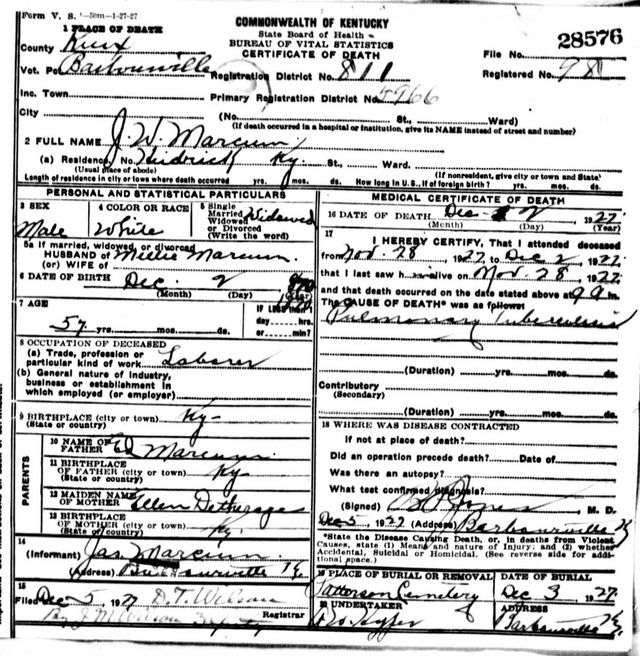 Form V. S. 1-50m-1-27-27
COMMONWEALTH OF KENTUCKY
State Board of Health
BUREAU OF VITAL STATISTICS
CERTIFICATE OF DEATH
28576
1 PLACE OF DEATH
County Knox
Vot. Pc Barbourville
Registration District No. 811
File No.
Registered No. 98
Inc. Town
Primary Registration District No. 5966
City (No. St., Ward)
(If death occurred in a hospital or institution, give its NAME instead of street and number)
2 FULL NAME J. W. Marcum
(a) Residence, No. Ky. St., Ward.
(Usual place of abode) (If nonresident, give city or town and State)
Length of residence in city or town where death occurred yrs. mos. ds. How long in U. S., if of foreign birth? yrs. mos. ds.
PERSONAL AND STATISTICAL PARTICULARS
3 SEX Male
4 COLOR OR RACE White
5 Single Married Widowed or Divorced (Write the word) Widowed
5a If married, widowed, or divorced
HUSBAND OF Millie Marcum
(or) WIFE of
6 DATE OF BIRTH Dec. 2
(Month) (Day) (Year)
7 AGE 57 yrs. mos. ds.
If LESS than 1 day hrs. or min.
8 OCCUPATION OF DECEASED
(a) Trade, profession or particular kind of work Laborer
(b) General nature of industry, business or establishment in which employed (or employer)
9 BIRTHPLACE (city or town) Ky.
(State or country)
PARENTS
10 NAME OF FATHER Ed Marcum
11 BIRTHPLACE OF FATHER (city or town) Ky.
(State or country)
12 MAIDEN NAME OF MOTHER Ellen
13 BIRTHPLACE OF MOTHER (city or town) Ky.
(State or country)
14
(Informant) Jas Marcum
(Address) Barbourville Ky.
15
Filed Dec 5 1927 D. T.
Registrar
MEDICAL CERTIFICATE OF DEATH
16 DATE OF DEATH Dec - 2 1927
(Month) (Day) (Year)
17
I HEREBY CERTIFY, That I attended deceased
from Nov. 28, 1927 to Dec 2, 1927
that I last saw h alive on Nov. 28, 1927
and that death occurred on the date stated above at 9 a m.
The CAUSE OF DEATH* was as follows:
Pulmonary Tuberculosis
(Duration) yrs. mos. ds.
Contributory
(Secondary)
(Duration) yrs. mos. ds.
18 WHERE WAS DISEASE CONTRACTED
If not at place of death?
Did an operation precede death? Date of
Was there an autopsy?
What test confirmed diagnosis?
(Signed) M. D.
Dec 5, 1927 (Address) Barbourville Ky
*State the Disease Causing Death, or, in deaths from Violent
Causes, state (1) Means and nature of Injury; and (2) whether
Accidental, Suicidal or Homicidal. (See reverse side for addi-
tional space.)
19 PLACE OF BURIAL OR REMOVAL Patterson Cemetery
DATE OF BURIAL Dec 3 1927
20 UNDERTAKER
ADDRESS Barbourville Ky.